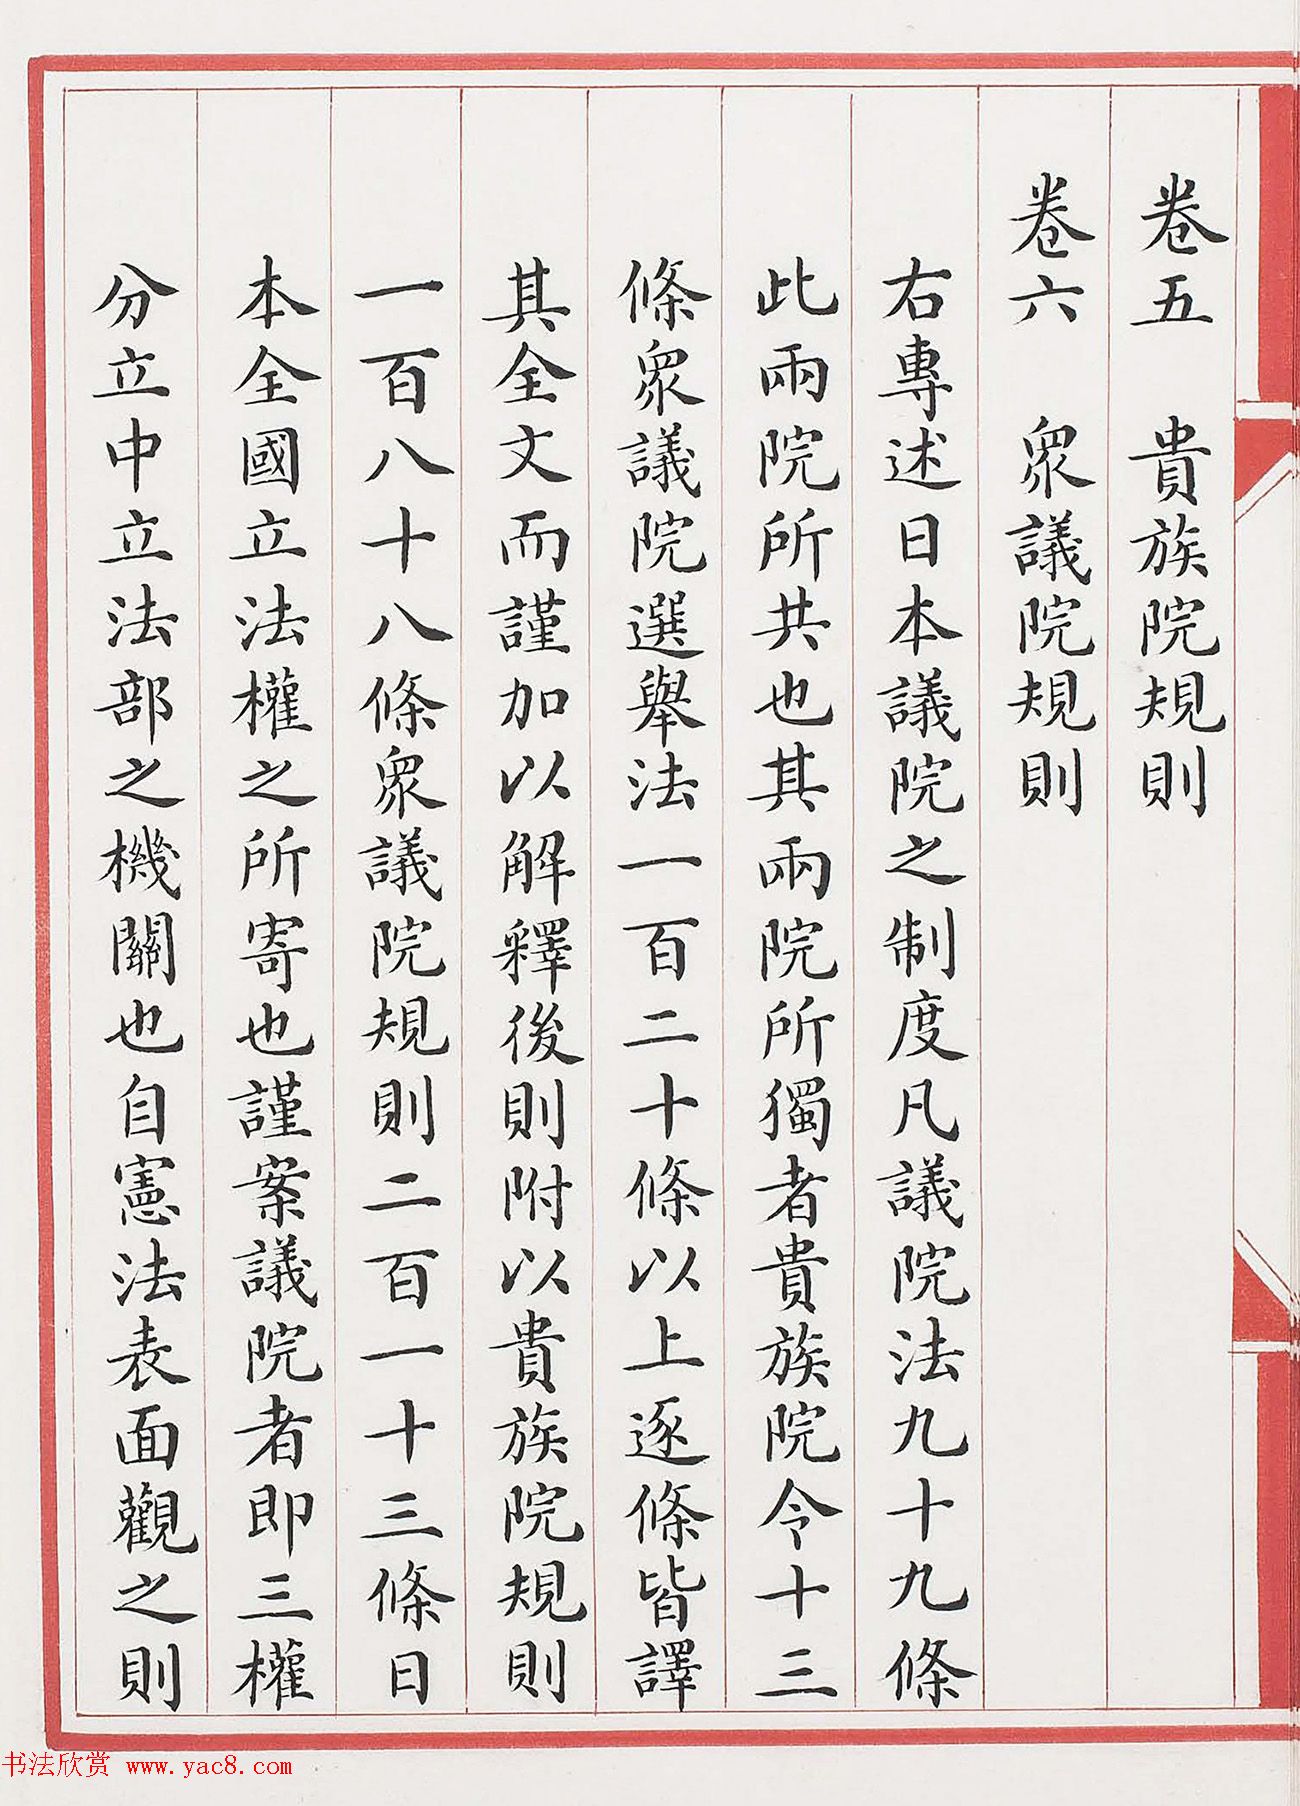 卷五　貴族院規則
卷六　眾議院規則
右專述日本議院之制度凡議院法九十九條
此兩院所共也其兩院所獨者貴族院令十三
條眾議院選舉法一百二十條以上逐條皆譯
其全文而謹加以解釋後則附以貴族院規則
一百八十八條眾議院規則二百一十三條日
本全國立法權之所寄也謹案議院者即三權
分立中立法部之機關也自憲法表面觀之則
书法欣赏 www.yac8.com